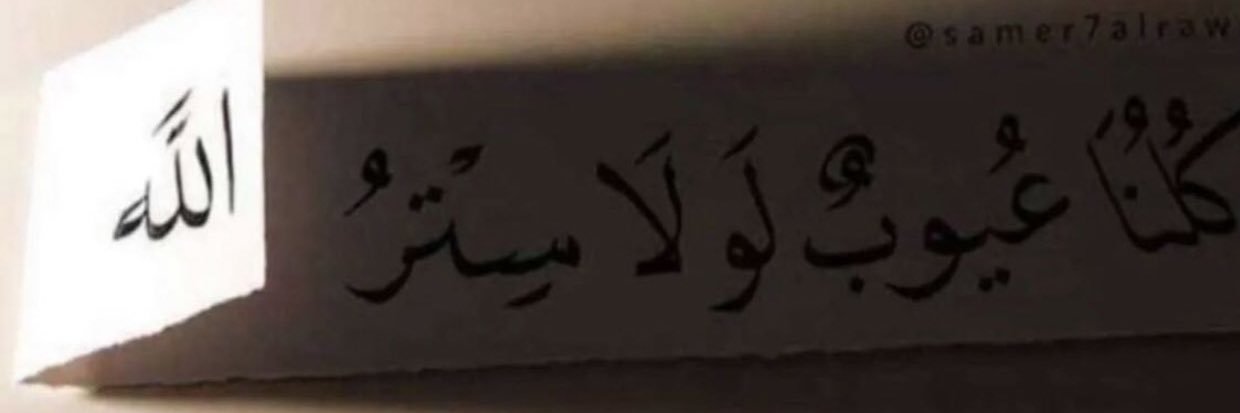 @samer7alraw
كُلُّنَا عُيُوبٌ لَولَا سِتْرُ اللَّه